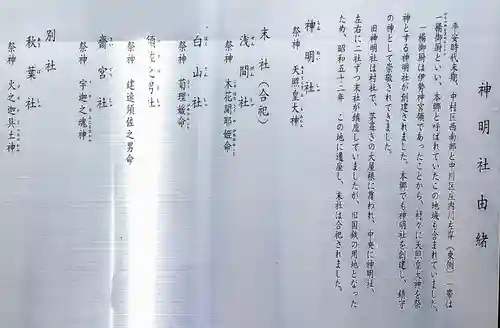 神明社由緒
平安時代末期、中村区西南部と中川区庄内川左岸(東側)一帯は
一楊御厨といい、本郷と呼ばれていたこの地域も含まれていました。
一楊御厨は伊勢神宮領であったことから、村々に天照皇大神を祭
神とする神明社が創建されました。本郷でも神明社を創建し、鎮守
の神として崇敬されてきました。
旧神明社は村社で、茅葺きの大屋根に覆われ、中央に神明社、
左右に二社ずつ末社が鎮座していましたが、旧国鉄の用地となった
ため、昭和五十二年 この地に遷座し、末社は合祀されました。
神明社
祭神 天照皇大神
末社(合祀)
浅間社
祭神 木花開耶姫命
白山社
祭神 菊理姫命
祭神 建速須佐之男命
齋宮社
祭神 宇迦之魂神
別社
秋葉社
祭神 火之迦具土神